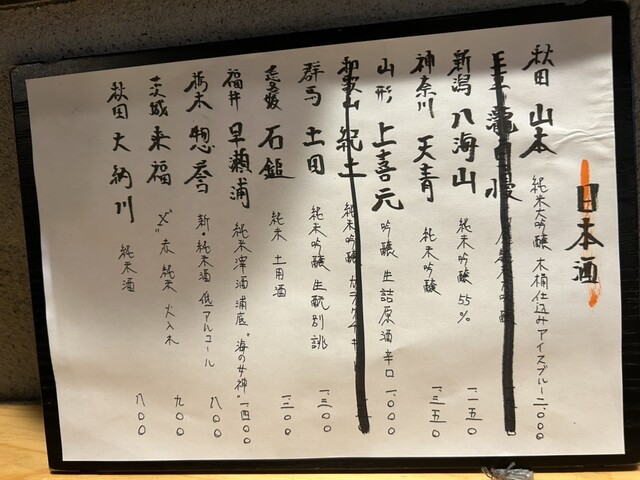 日本酒
秋田 山本 純米大吟醸 木桶仕込みアイスブルー 二、〇〇〇
新潟 八海山 純米吟醸 55% 一、一五〇
神奈川 天青 純米吟醸 一、三五〇
山形 上喜元 吟醸 生詰原酒 辛口 一、〇〇〇
和歌山 紀土 純米吟醸
群馬 土田 純米吟醸 生酛別誂 一、三〇〇
愛媛 石鎚 純米 土用酒 一、二〇〇
福井 早瀬浦 純米滓酒 浦底"海の女神" 一、四〇〇
栃木 惣誉 新・純米酒 低アルコール 八〇〇
茨城 来福 "X" 赤 純米 火入れ 九〇〇
秋田 大納川 純米酒 八〇〇